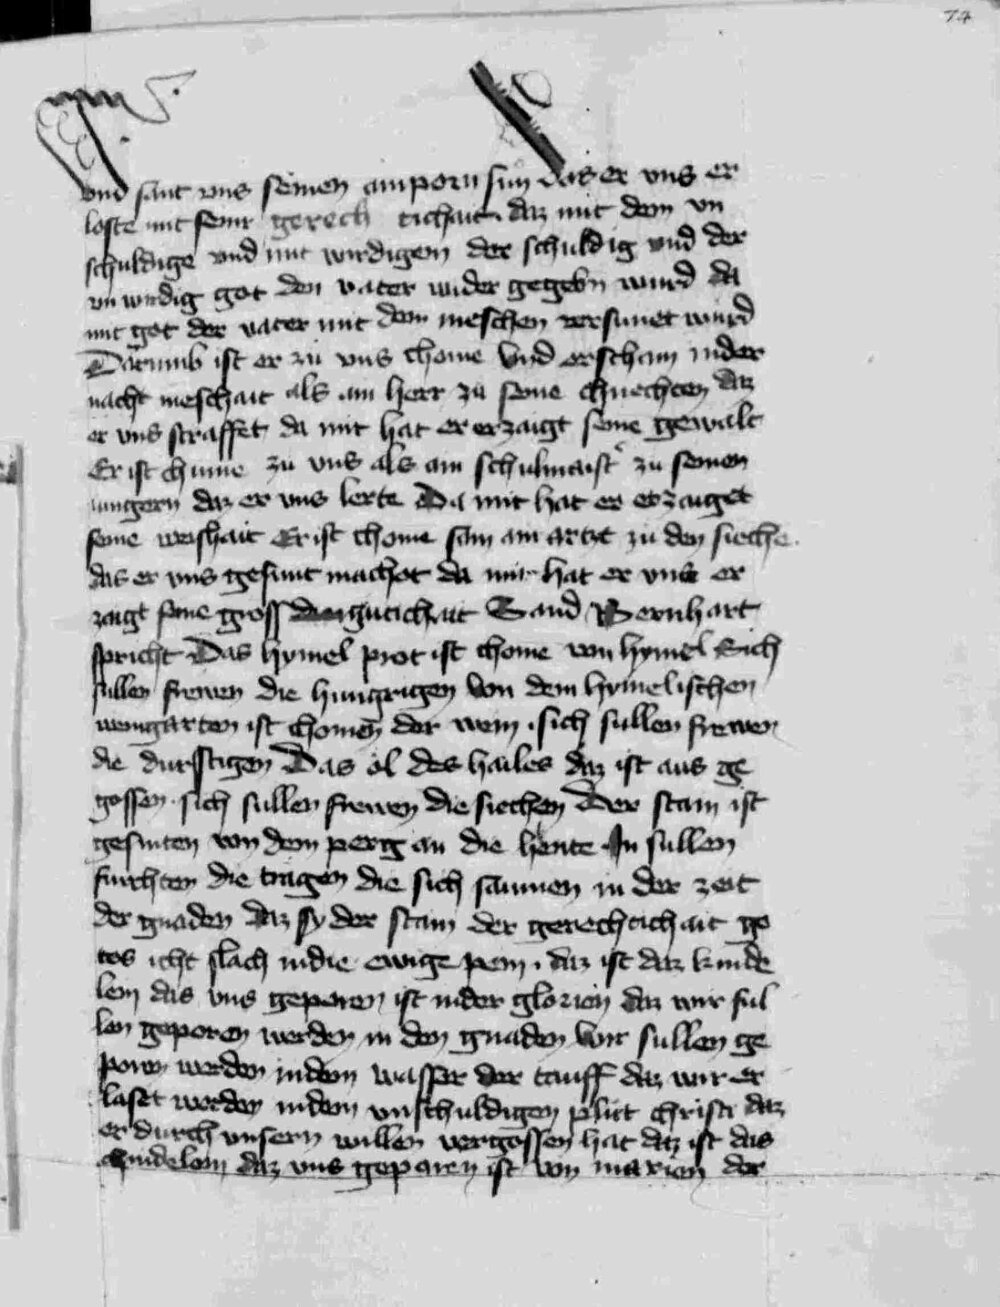 74
vnd sant vns seinen ainporn sun das er vns er
loste mit seinr gerech tichait daz mit dem vn
schuldige vnd mit wirdigem der schuldig vnd der
vn wirdig got den vater wider gegebn wurd da
mit got der vater mit dem meschen versunet wurd
Darumb ist er zu vns chome vnd erscham in der
nacht meschait als ain herr zu seine chnechten daz
er vns straffet da mit hat er erzaigt seine gewalt
Er ist chume zu vns als ain schulmaist zu seinen
iungern daz er vns lerte Da mit hat er erzaiget
seine weishait Er ist chome sam ain artzt zu den sieche
das er vns gesunt machet da mit hat er vns er
zaigt seine gross guticheit Sand Bernhart
spricht Das hymel prot ist chome von hymel Sich
sullen frewen die hungrigen von dem hymelischen
weingarten ist chomen der wein sich sullen frewen
die durstigen Das öl des hailes daz ist aus ge
gossen sich sullen frewen die siechen Der stain ist
gesniten von dem perg an die hente In sullen
furchten die tragen die sich saumen in der zeit
der gnaden daz sy der stain der gerechtichait go
tes icht slach in die ewige pein daz ist daz kinde
lein das vns geporen ist in der glorien daz wir sul
len geporen werden in den gnaden wir sullen ge
poren werden in dem wasser der tauff daz wir er
laset werden in dem vnschuldigen plut christi daz
er durch vnsern willen vergossen hat daz ist das
chindelein daz vns geparen ist von marien der